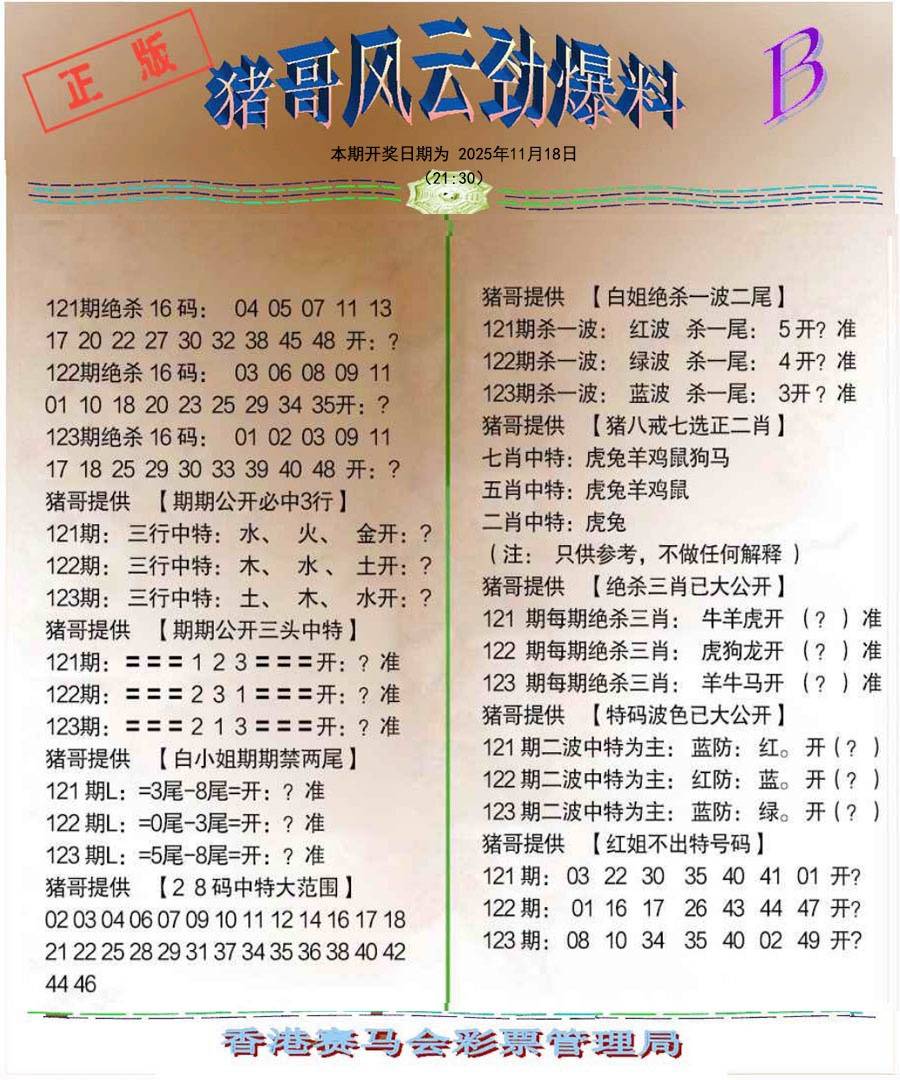 正版
猪哥风云劲爆料
B
本期开奖日期为 2025年11月18日
(21:30)
121期绝杀 16 码： 04 05 07 11 13
17 20 22 27 30 32 38 45 48 开：?
122期绝杀 16 码： 03 06 08 09 11
01 10 18 20 23 25 29 34 35开：?
123期绝杀 16 码： 01 02 03 09 11
17 18 25 29 30 33 39 40 48 开：?
猪哥提供 【期期公开必中3行】
121期： 三行中特： 水、 火、 金开：?
122期： 三行中特： 木、 水、 土开：?
123期： 三行中特： 土、 木、 水开：?
猪哥提供 【期期公开三头中特】
121期：＝＝＝１２３＝＝＝开：? 准
122期：＝＝＝２３１＝＝＝开：? 准
123期：＝＝＝２１３＝＝＝开：? 准
猪哥提供 【白小姐期期禁两尾】
121 期L：=3尾-8尾=开：? 准
122 期L：=0尾-3尾=开：? 准
123 期L：=5尾-8尾=开：? 准
猪哥提供 【２８码中特大范围】
02 03 04 06 07 09 10 11 12 14 16 17 18
21 22 25 28 29 31 37 34 35 36 38 40 42
44 46
猪哥提供 【白姐绝杀一波二尾】
121期杀一波： 红波 杀一尾： 5 开? 准
122期杀一波： 绿波 杀一尾： 4 开? 准
123期杀一波： 蓝波 杀一尾： 3开 ? 准
猪哥提供 【猪八戒七选正二肖】
七肖中特：虎兔羊鸡鼠狗马
五肖中特：虎兔羊鸡鼠
二肖中特：虎兔
（注： 只供参考，不做任何解释 ）
猪哥提供 【绝杀三肖已大公开】
121 期每期绝杀三肖： 牛羊虎开 （? ）准
122 期每期绝杀三肖： 虎狗龙开 （? ）准
123 期每期绝杀三肖： 羊牛马开 （? ）准
猪哥提供 【特码波色已大公开】
121 期二波中特为主： 蓝防： 红。 开（? ）
122 期二波中特为主： 红防： 蓝。 开（? ）
123 期二波中特为主： 蓝防： 绿。 开（? ）
猪哥提供 【红姐不出特号码】
121 期： 03 22 30 35 40 41 01 开?
122 期： 01 16 17 26 43 44 47 开?
123 期： 08 10 34 35 40 02 49 开?
香港赛马会彩票管理局